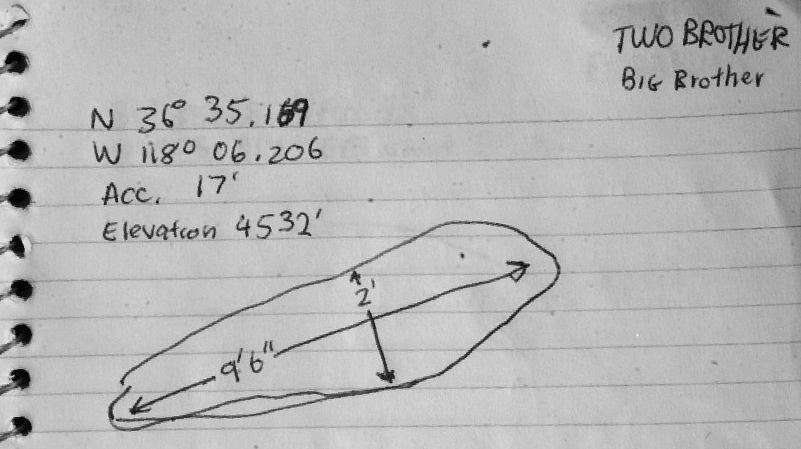 TWO BROTHER
BIG Brother
N 36° 35.169
W 118° 06.206
Acc. 17'
Elevation 4532'
2'
9'6"